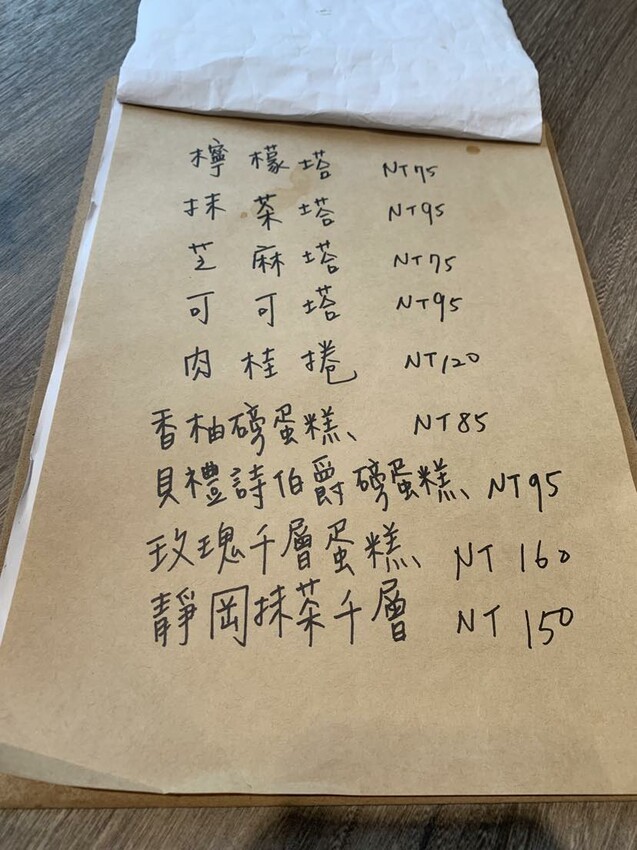 檸檬塔 NT75
抹茶塔 NT95
芝麻塔 NT75
可可塔 NT95
肉桂捲 NT120
香柚磅蛋糕、 NT85
貝禮詩伯爵磅蛋糕、 NT95
玫瑰千層蛋糕、 NT 160
靜岡抹茶千層 NT 150